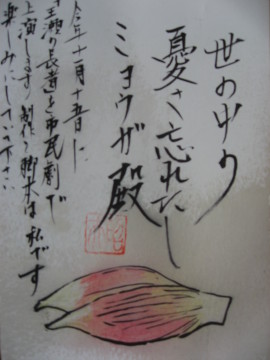 世の中の
憂さ忘れたし
ミョウガ殿
今年十一月十五日に
長者を市民劇で
上演します 制作・脚本は私です
楽しみにして下さい